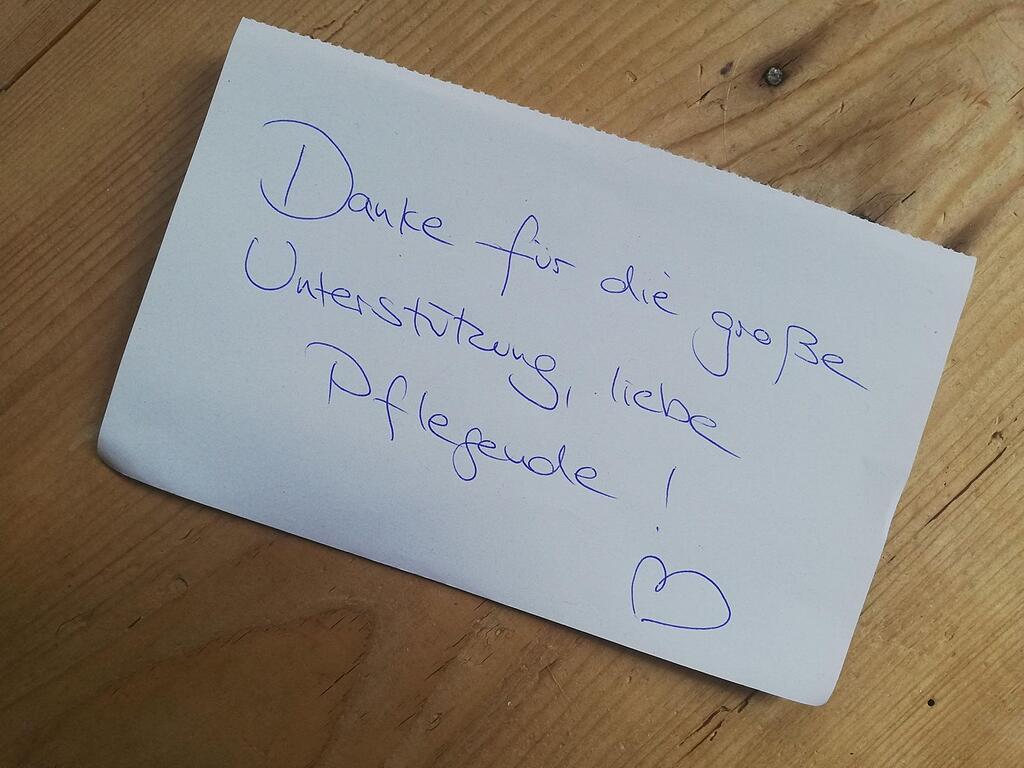 Danke für die große
Unterstützung, liebe
Pflegende !